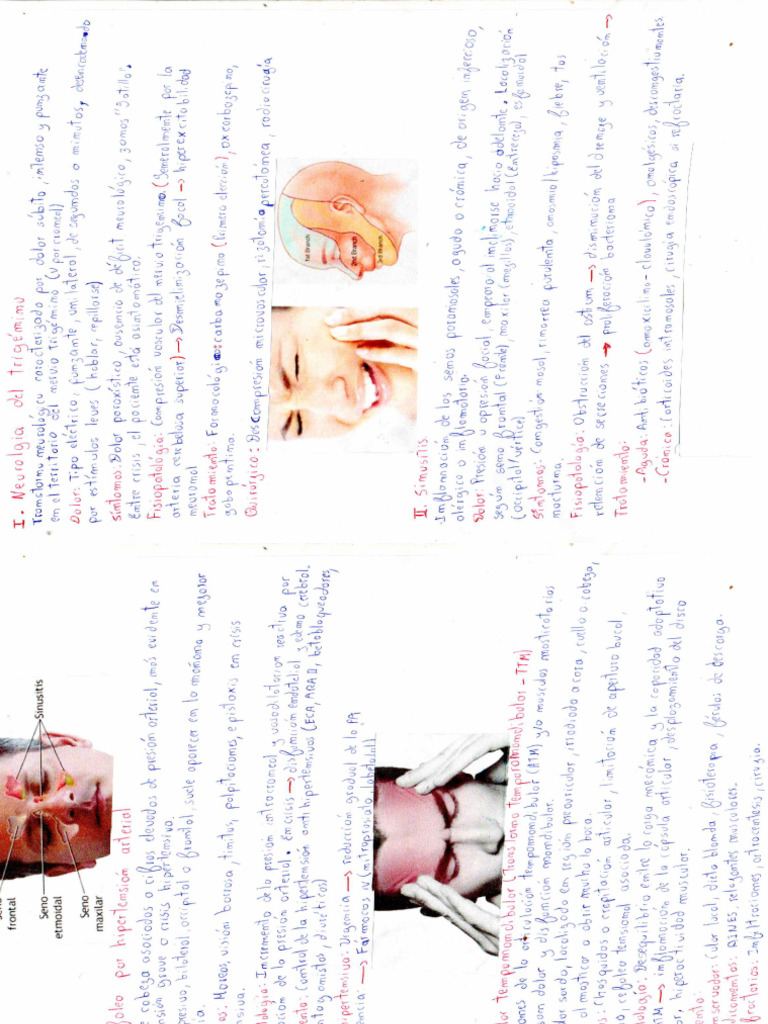 I. Neuralgia del trigémino
Transtorno neurológico caracterizado por dolor súbito, intenso y punzante
en el territorio del nervio trigémino (V par craneal)
Dolor: Tipo eléctrico, punzante, unilateral, de segundos a minutos, desencadenado
por estímulos leves (hablar, cepillarse)
Síntomas: Dolor paroxístico, ausencia de déficit neurológico, zonas "gatillo".
Entre crisis, el paciente está asintomático.
Fisiopatología: Compresión vascular del nervio trigémino. (Generalmente por la
arteria cerebelosa superior) → Desmielinización focal → hiperexcitabilidad
neuronal
Tratamiento: Farmacológico: carbamazepina (Primera elección), oxcarbazepina,
gabapentina.
Quirúrgico: Descompresión microvascular, rizotomía percutánea, radiocirugía
1st Branch
2nd Branch
3rd Branch
II. Sinusitis
- Inflamación de los senos paranasales, aguda o crónica, de origen infeccioso,
alérgico o inflamatorio.
Dolor: Presión u opresión facial, empeora al inclinarse hacia adelante. Localización
según seno frontal (Frente), maxilar (mejillas), etmoidal (Entrecejo), esfenoidal
(occipital/vértice)
Síntomas: Congestión nasal, rinorrea purulenta, anosmia/hiposmia, fiebre, tos
nocturna.
Fisiopatología: Obstrucción del ostium → disminución del drenaje y ventilación →
retención de secreciones → proliferación bacteriana
Tratamiento:
- Aguda: Antibióticos (amoxicilina-clavulánico), analgésicos, descongestionantes.
- Crónica: Corticoides intranasales, cirugía endoscópica si refractaria.
frontal
Seno
etmoidal
Seno
maxilar
Sinusitis
por hipertensión arterial
cabeza asociados a cifras elevadas de presión arterial, más evidente en
grave o crisis hipertensiva.
bilateral, occipital o frontal, suele aparecer en la mañana y mejorar
Mareos, visión borrosa, tinitus, palpitaciones, epistaxis en crisis
Incremento de la presión intracraneal y vasodilatación reactiva por
de la presión arterial. En crisis → disfunción endotelial y edema cerebral.
Control de la hipertensión con antihipertensivos (ECA, ARA II, betabloqueadores,
diuréticos)
Urgencia → reducción gradual de la PA
→ Fármacos IV (nitroprusiato, labetalol)
temporomandibular (Transtorno temporomandibular - TTM)
de la articulación temporomandibular (ATM) y/o músculos masticatorios
dolor y disfunción mandibular.
sordo, localizado en región preauricular, irradiado a cara, cuello o cabeza,
al masticar o abrir mucho la boca.
Chasquidos o crepitación articular, limitación de apertura bucal,
cefalea tensional asociada.
Desequilibrio entre la carga mecánica y la capacidad adaptativa
ATM → inflamación de la cápsula articular, desplazamiento del disco
hiperactividad muscular.
Calor local, dieta blanda, fisioterapia, férulas de descarga.
AINES, relajantes musculares.
Infiltraciones, artrocentesis, cirugía.